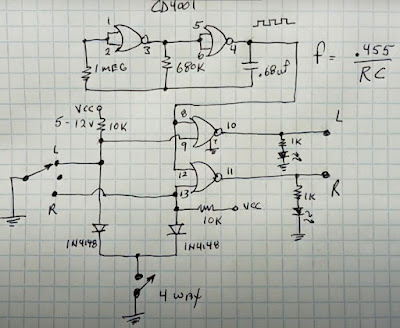 CD4001
1
2
3
5
6
4
1MEG
680K
.68uf
f = .455
RC
VCC
5-12v
10K
8
9
10
7
L
1K
L
R
12
13
11
R
1K
10K
VCC
1N4148
1N4148
4 WAY